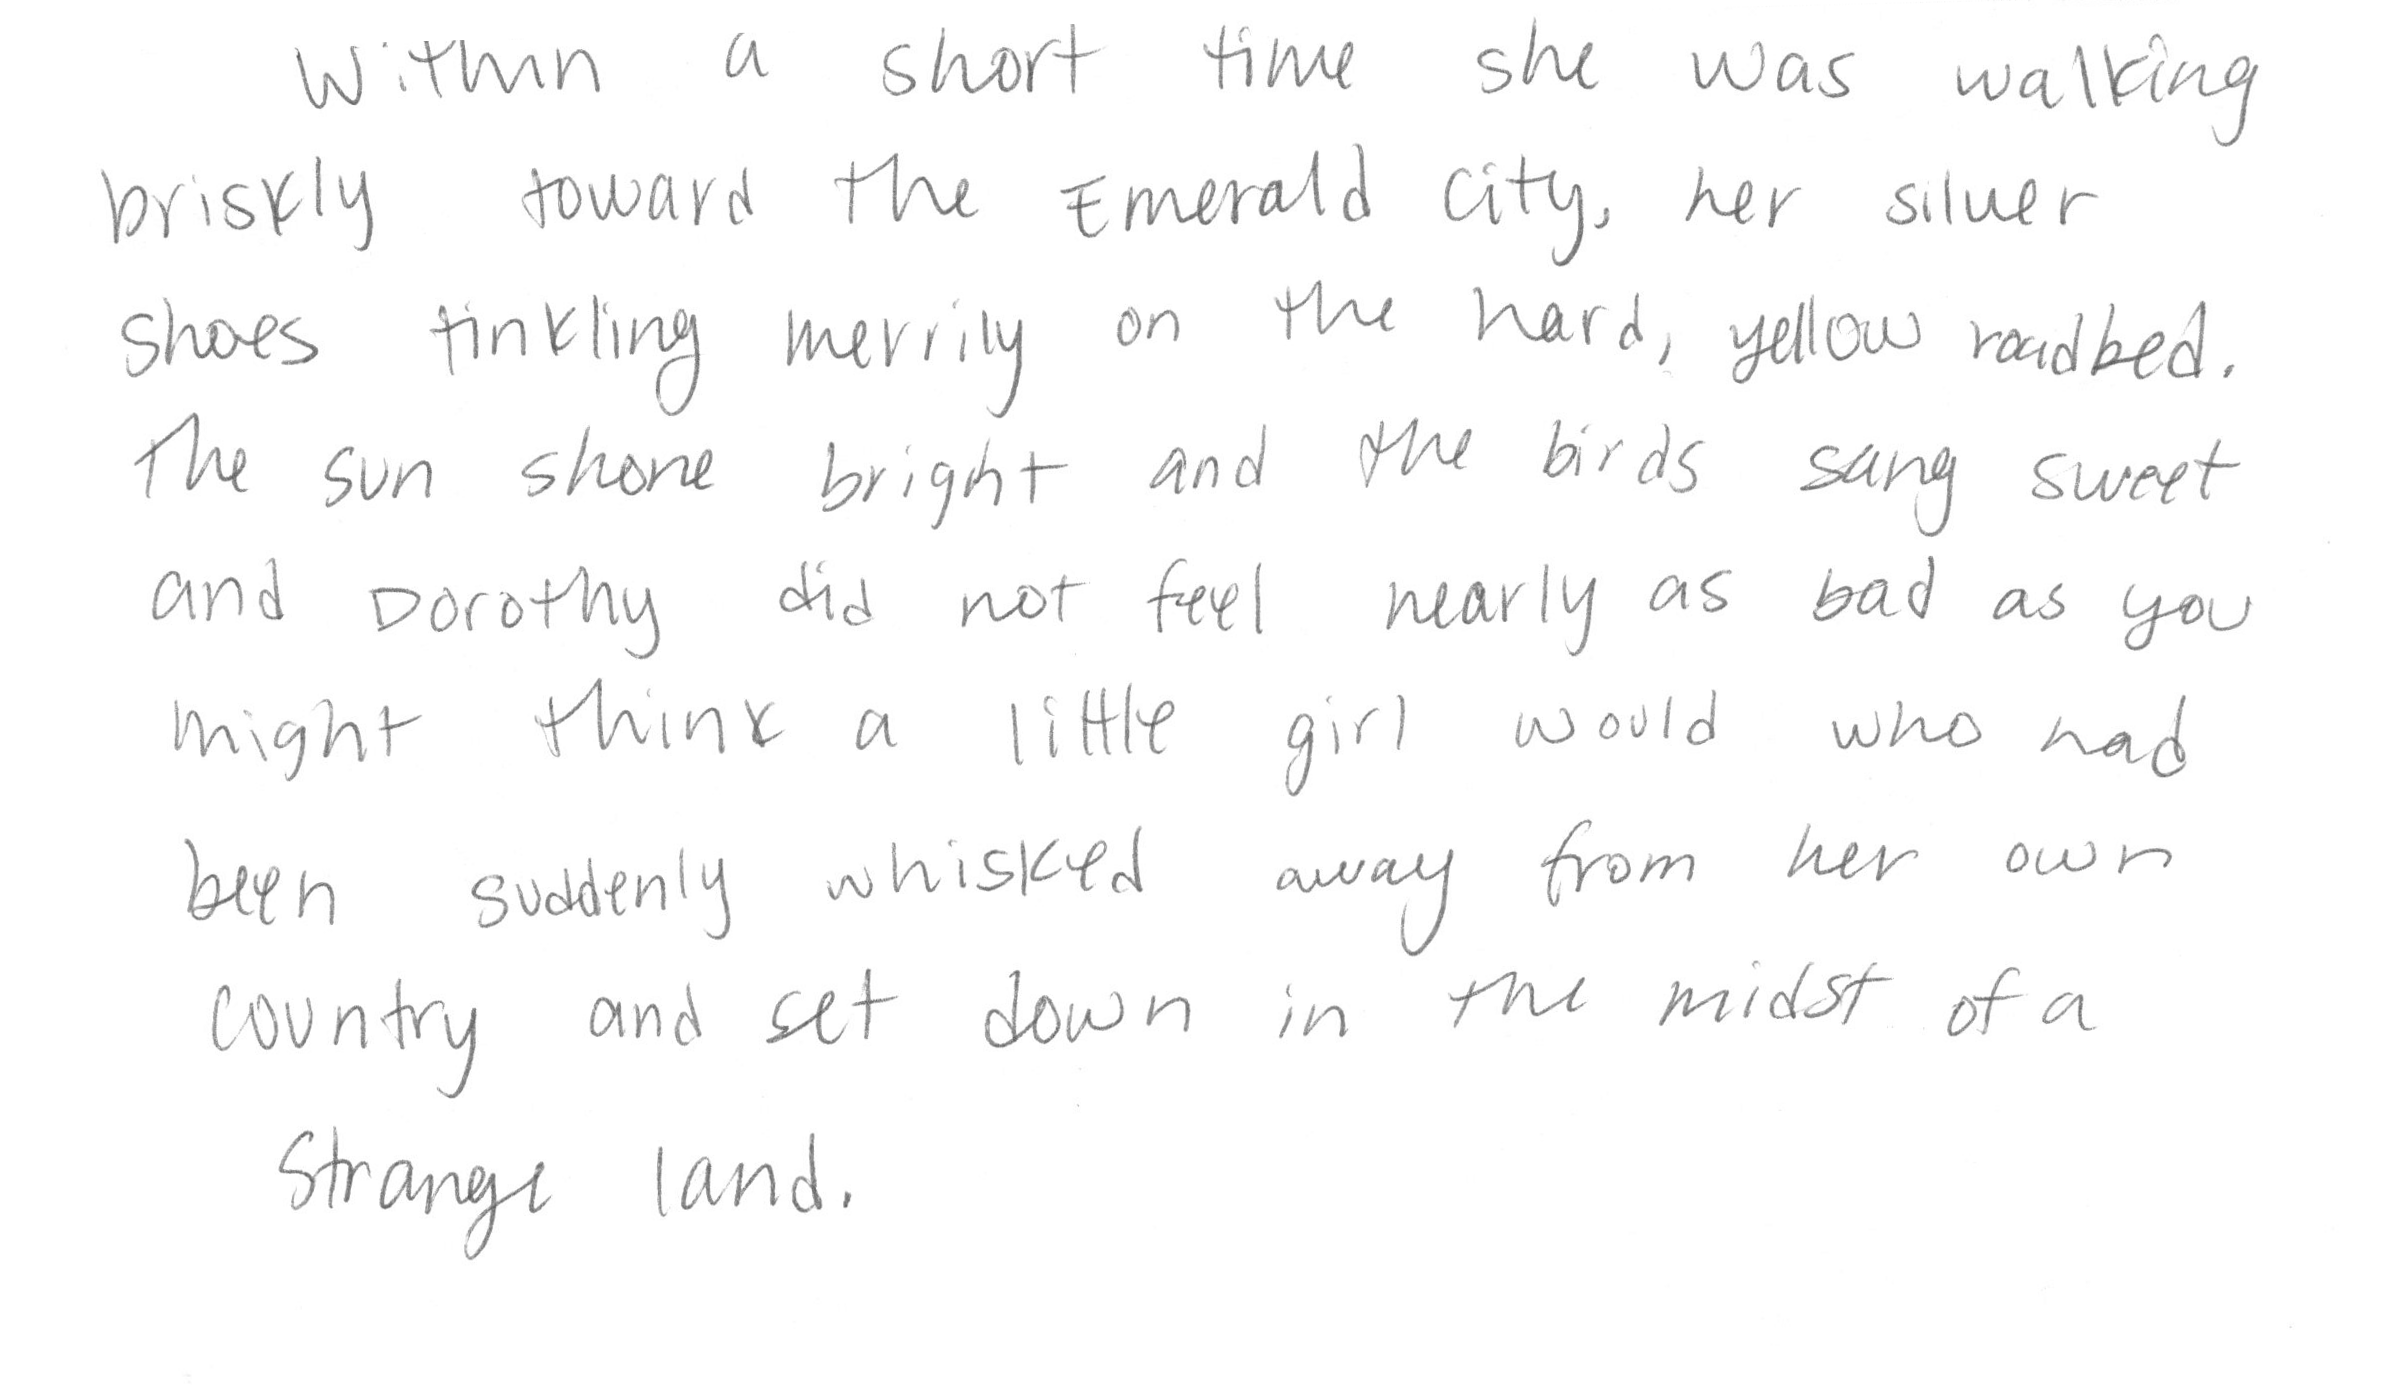 Within a short time she was walking
briskly toward the Emerald City, her silver
shoes tinkling merrily on the hard, yellow roadbed.
The sun shone bright and the birds sang sweet
and Dorothy did not feel nearly as bad as you
might think a little girl would who had
been suddenly whisked away from her own
country and set down in the midst of a
strange land.